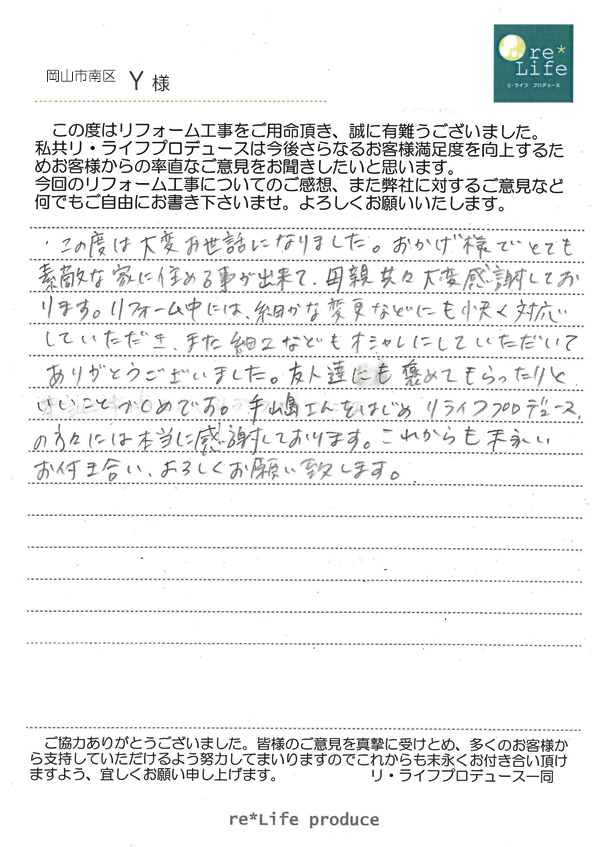 岡山市南区 Y 様
re*
Life
リ・ライフ プロデュース
この度はリフォーム工事をご用命頂き、誠に有難うございました。
私共リ・ライフプロデュースは今後さらなるお客様満足度を向上するた
めお客様からの率直なご意見をお聞きしたいと思います。
今回のリフォーム工事についてのご感想、また弊社に対するご意見など
何でもご自由にお書き下さいませ。よろしくお願いいたします。
・この度は大変お世話になりました。おかげ様でとても
素敵な家に住める事が出来て、母親共々大変感謝してお
ります。リフォーム中には、細かな変更などにも快く対応
していただき、また細工などもオシャレにしていただいて
ありがとうございました。友人達にも褒めてもらったりと
いいことづくめです。手嶋さんをはじめリライフプロデュース
の方々には本当に感謝しております。これからも末永い
お付き合い、よろしくお願い致します。
ご協力ありがとうございました。皆様のご意見を真摯に受けとめ、多くのお客様か
ら支持していただけるよう努力してまいりますのでこれからも末永くお付き合い頂け
ますよう、宜しくお願い申し上げます。 リ・ライフプロデュース一同
re*Life produce